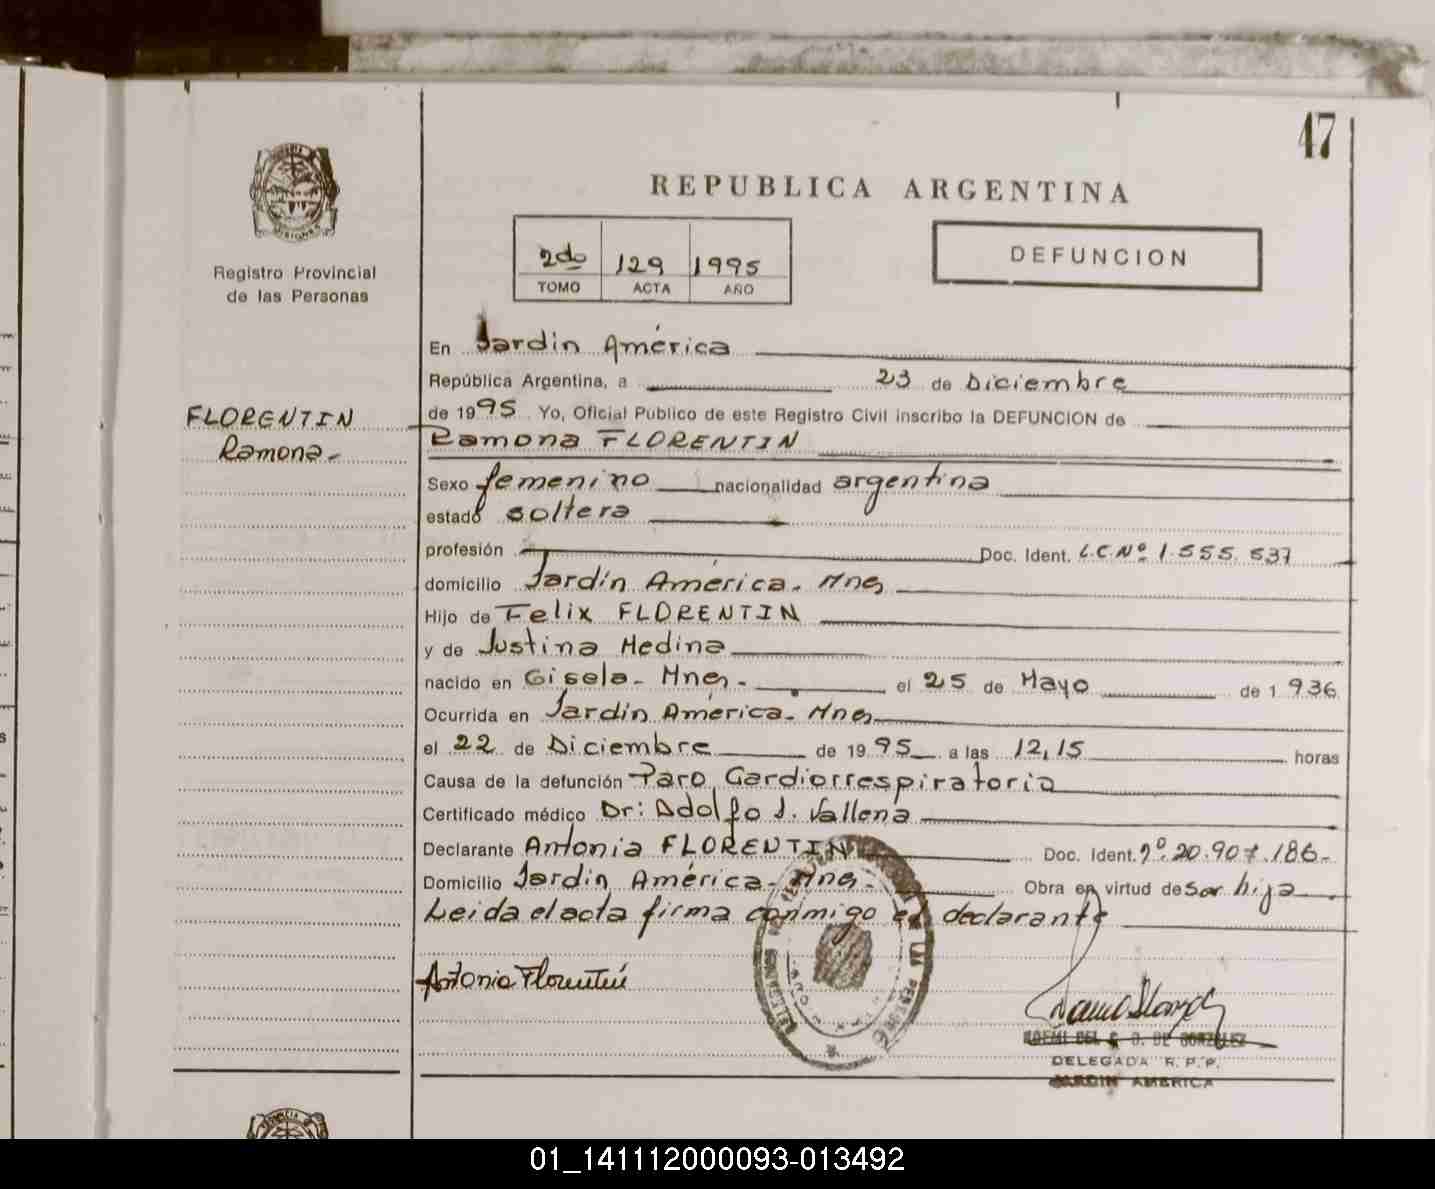 47
REPUBLICA ARGENTINA
2do 129 1995
TOMO ACTA AÑO
DEFUNCION
Registro Provincial
de las Personas
FLORENTIN
Ramona.-
En Jardin América
República Argentina, a 23 de Diciembre
de 1995 Yo, Oficial Publico de este Registro Civil inscribo la DEFUNCION de
Ramona FLORENTIN
Sexo femenino nacionalidad argentina
estado soltera
profesión Doc. Ident. L.C.Nº 1.555.537
domicilio Jardín América. Mnes
Hijo de Felix FLORENTIN
y de Justina Medina
nacido en Gisela- Mnes.- el 25 de Mayo de 1936.
Ocurrida en Jardín América- Mnes
el 22 de Diciembre de 1995 a las 12,15 horas
Causa de la defunción Paro Cardiorrespiratorio
Certificado médico Dr: Adolfo J. Vallena
Declarante Antonia FLORENTIN Doc. Ident. Nº. 20.907.186-
Domicilio Jardin América- Mnes.- Obra en virtud de ser hija
Leida el acta firma conmigo el declarante
Antonia Florentín
NOEMI DEL C. D. DE GONZALEZ
DELEGADA R. P. P.
JARDIN AMERICA
01_141112000093-013492